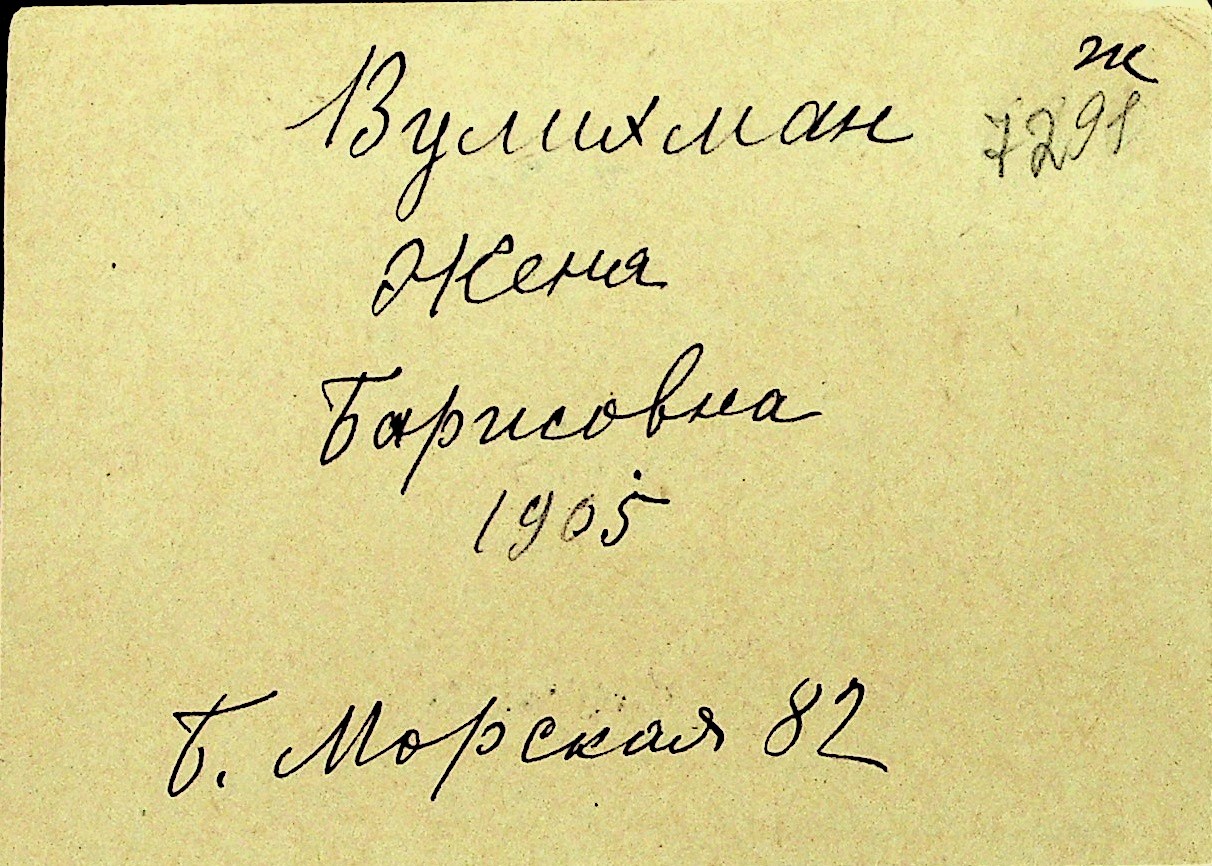 ж
Вулихман 7291
Женя
Барисовна
1905
Б. Морская 82